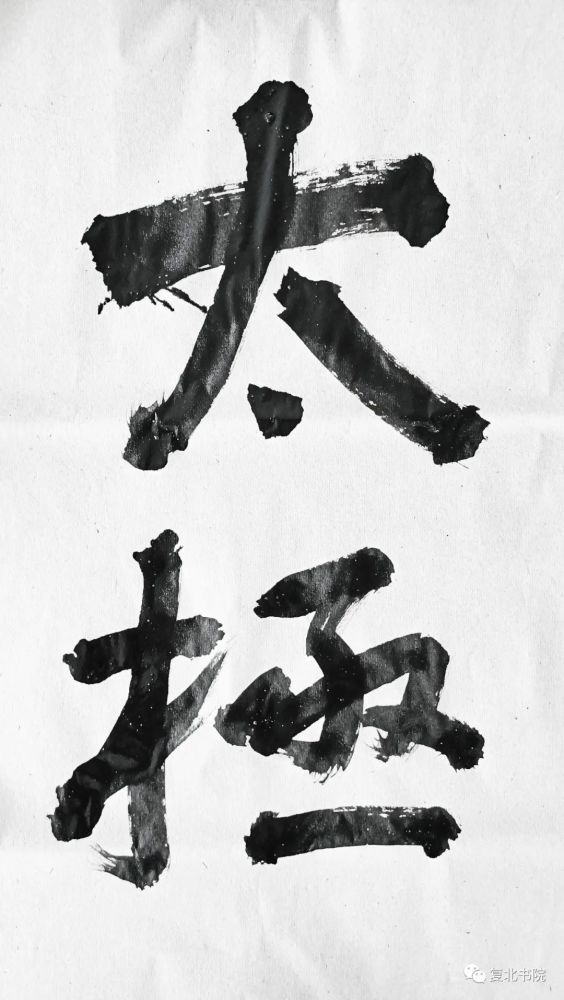 太
極
复北书院